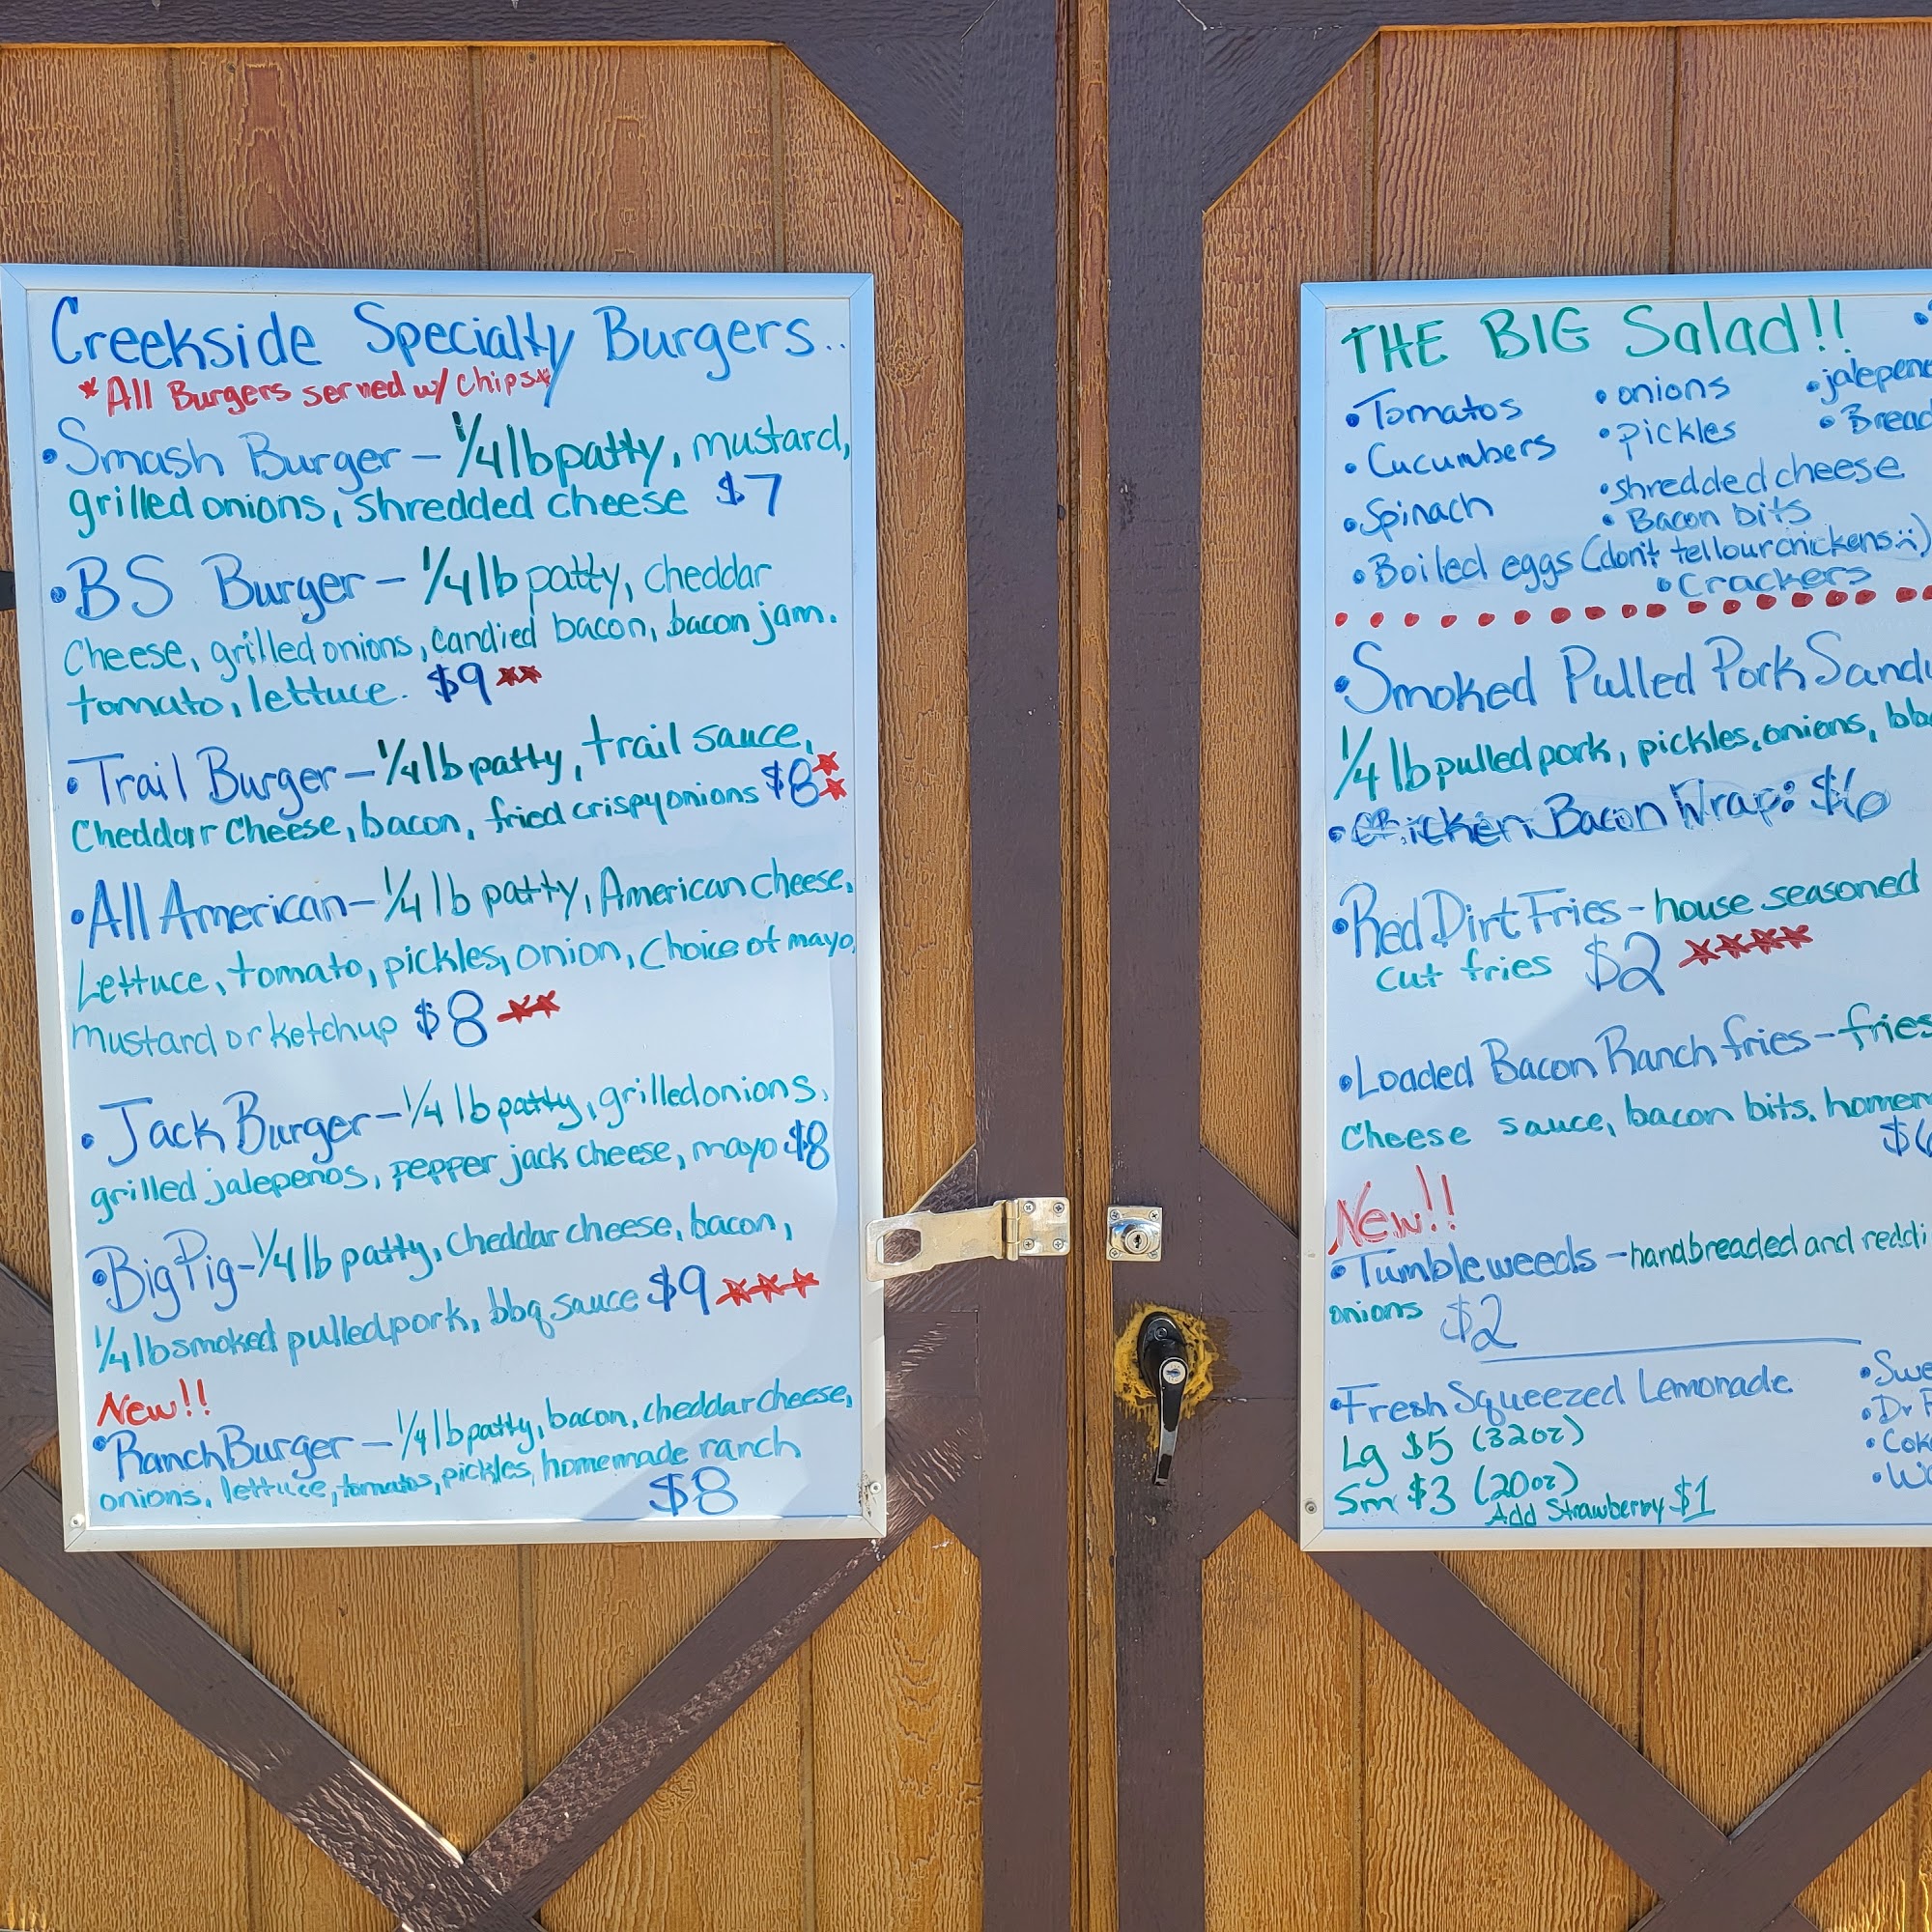 Creekside Specialty Burgers..
*All Burgers served w/ chips*
•Smash Burger - 1/4 lb patty, mustard,
grilled onions, shredded cheese $7
•BS Burger - 1/4 lb patty, cheddar
Cheese, grilled onions, candied bacon, bacon jam.
tomato, lettuce. $9 **
•Trail Burger - 1/4 lb patty, trail sauce,
Cheddar Cheese, bacon, fried crispy onions $8 **
•All American - 1/4 lb patty, American cheese,
Lettuce, tomato, pickles, onion, Choice of mayo,
mustard or ketchup $8 **
•Jack Burger - 1/4 lb patty, grilled onions,
grilled jalepenos, pepper jack cheese, mayo $8
•Big Pig - 1/4 lb patty, cheddar cheese, bacon,
1/4 lb smoked pulled pork, bbq sauce $9 ***
New!!
•Ranch Burger - 1/4 lb patty, bacon, cheddar cheese,
onions, lettuce, tomatos, pickles, homemade ranch
$8
THE BIG Salad!!
•Tomatos •onions
•Cucumbers •pickles
•Spinach •shredded cheese
•Bacon bits
•Boiled eggs (don't tell our chickens :))
•Crackers
•Smoked Pulled Pork
1/4 lb pulled pork, pickles, onions,
•Chicken Bacon Wrap: $6
•Red Dirt Fries - house seasoned
cut fries $2 ****
•Loaded Bacon Ranch fries - fries
Cheese sauce, bacon bits,
New!!
•Tumbleweeds - handbreaded and
onions $2
•Fresh Squeezed Lemonade
Lg $5 (32oz)
Sm $3 (20oz)
Add Strawberry $1